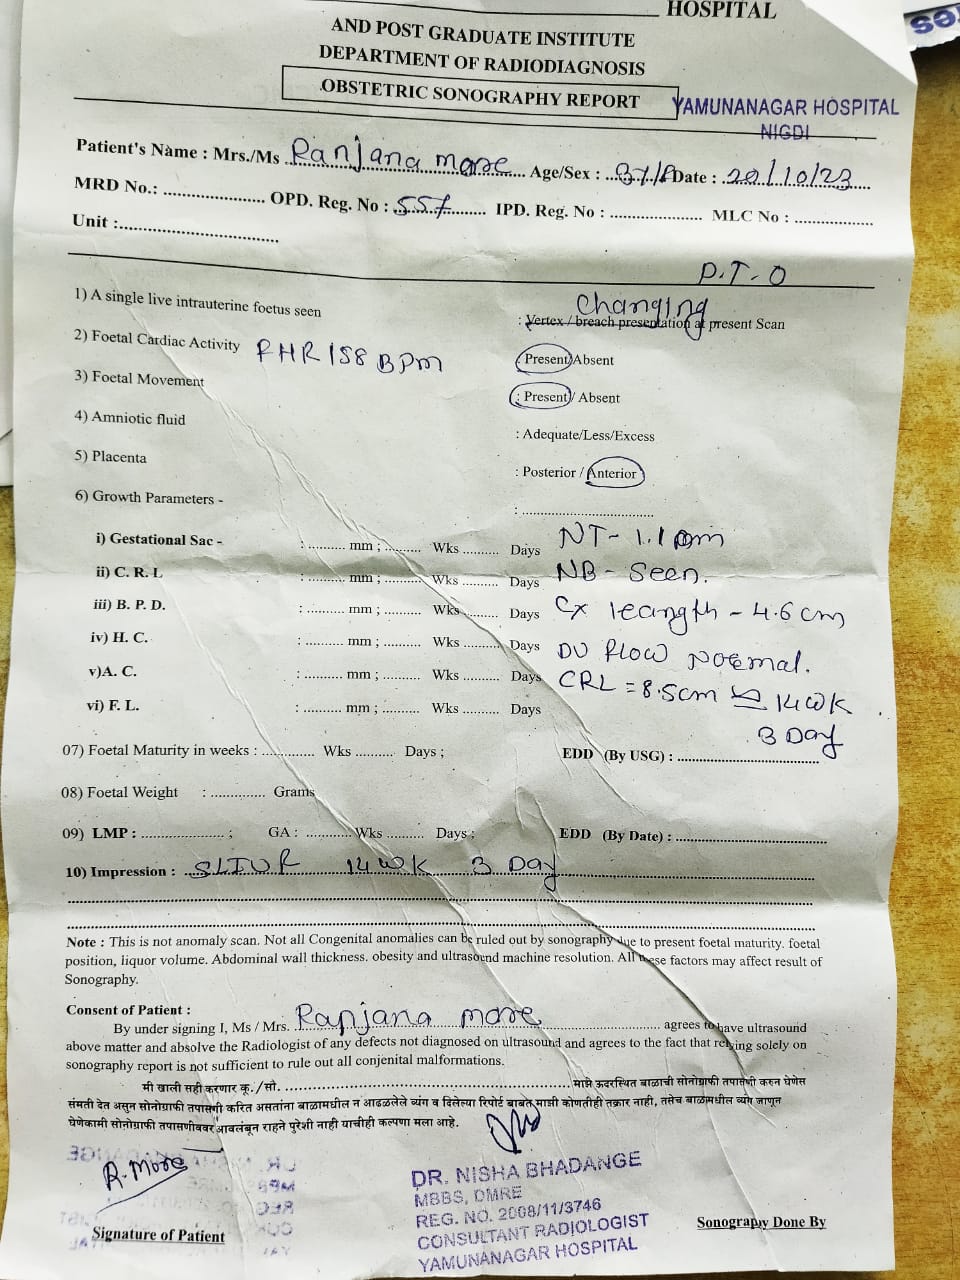 HOSPITAL
AND POST GRADUATE INSTITUTE
DEPARTMENT OF RADIODIAGNOSIS
OBSTETRIC SONOGRAPHY REPORT
YAMUNANAGAR HOSPITAL
NIGDI
Patient's Name : Mrs./Ms Ranjana more Age/Sex : Date : 20/10/23
MRD No.: OPD. Reg. No : 557 IPD. Reg. No : MLC No :
Unit :
P.T.O
Changing
1) A single live intrauterine foetus seen : Vertex / breach presentation at present Scan
2) Foetal Cardiac Activity FHR 158 BPM Present/Absent
3) Foetal Movement : Present / Absent
4) Amniotic fluid : Adequate/Less/Excess
5) Placenta : Posterior / Anterior
6) Growth Parameters - :
i) Gestational Sac - : mm ; Wks Days NT- 1.1 mm
ii) C. R. L : mm ; Wks Days NB - Seen.
iii) B. P. D. : mm ; Wks Days Cx leangth - 4.6 cm
iv) H. C. : mm ; Wks Days DV flow Normal.
v)A. C. : mm ; Wks Days CRL = 8.5cm ≌ 14 WK
vi) F. L. : mm ; Wks Days 3 Day
07) Foetal Maturity in weeks : Wks Days ; EDD (By USG) :
08) Foetal Weight : Grams
09) LMP : ; GA : Wks Days ; EDD (By Date) :
10) Impression : SLIUF 14 WK 3 Day
Note : This is not anomaly scan. Not all Congenital anomalies can be ruled out by sonography due to present foetal maturity. foetal
position, liquor volume. Abdominal wall thickness. obesity and ultrasound machine resolution. All these factors may affect result of
Sonography.
Consent of Patient :
By under signing I, Ms / Mrs. Ranjana more agrees to have ultrasound
above matter and absolve the Radiologist of any defects not diagnosed on ultrasound and agrees to the fact that relying solely on
sonography report is not sufficient to rule out all conjenital malformations.
मी खाली सही करणार कू./सो. माझे ऊदरस्थित बाळाची सोनोग्राफी तपासणी करुन घेणेस
संमती देत असुन सोनोग्राफी तपासणी करित असतांना बाळामधील न आढळलेले व्यंग व दिलेल्या रिपोर्ट बाबत माझी कोणतीही तक्रार नाही, तसेच बाळामधील व्यंग जाणून
घेणेकामी सोनोग्राफी तपासणीवर आवलंबून राहने पुरेशी नाही याचीही कल्पना मला आहे.
R. More
DR. NISHA BHADANGE
MBBS, DMRE
REG. NO. 2008/11/3746
CONSULTANT RADIOLOGIST
YAMUNANAGAR HOSPITAL
Signature of Patient
Sonography Done By